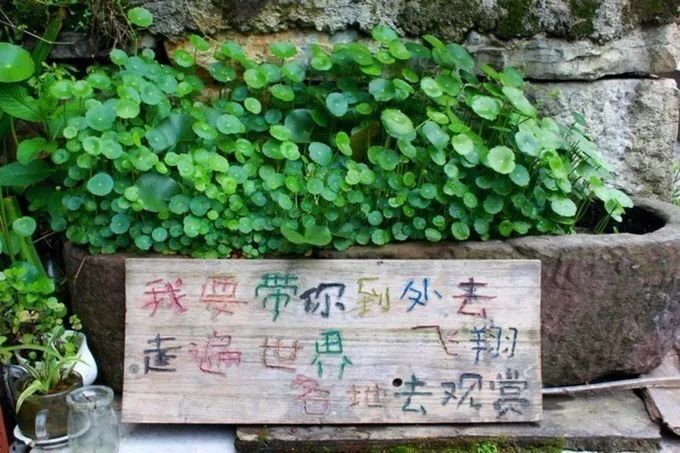 我要带你到处去
走遍世界 飞翔
各地去观赏